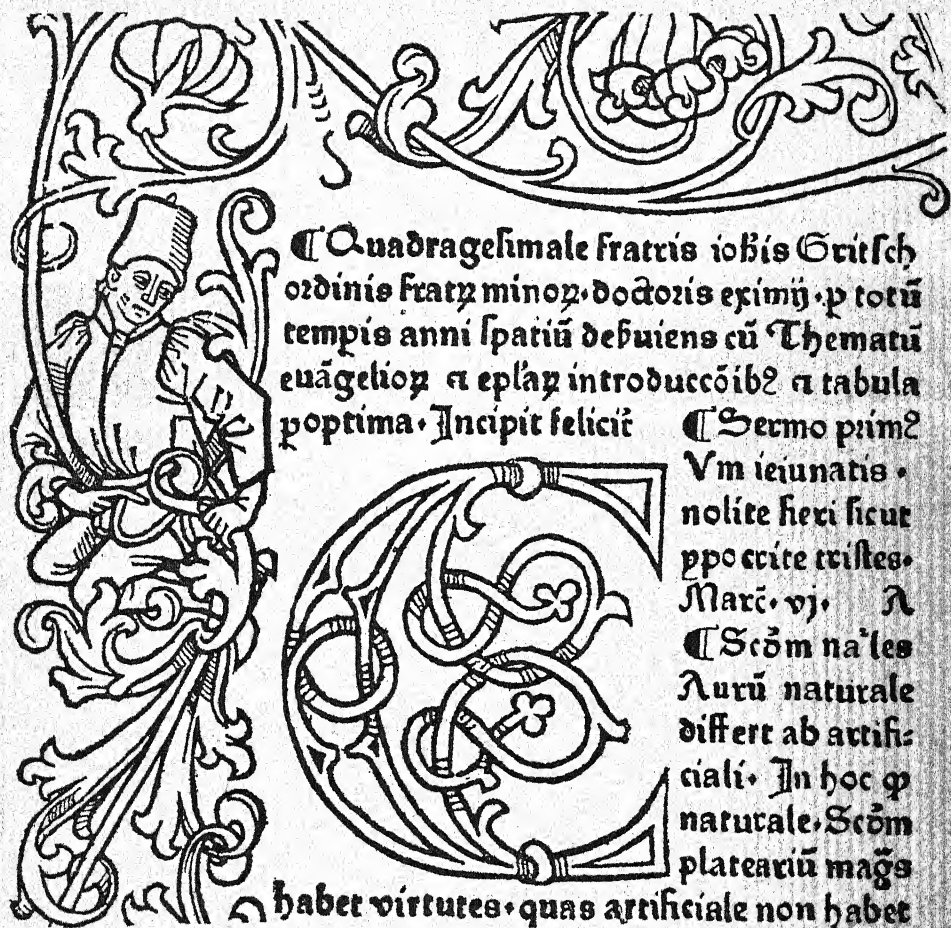 ¶ Quadragesimale fratris ioħis Gritsch
ordinis fratꝝ minoꝝ. doctoris eximij. ꝑ totū
tempis anni spatiū deẜuiens cū Thematū
euāgelioꝝ ⁊ epl'aꝝ introduccōibꝰ ⁊ tabula
ꝑoptima. Incipit felicit̃
¶ Sermo primꝰ
CVm ieiunatis .
nolite fieri sicut
ypocrite tristes.
Marc̄. vj. A
¶ Scd̄m na'les
Aurū naturale
differt ab artifi:
ciali. In hoc ꝙ
naturale. Scd̄m
plateariū mag̃s
habet virtutes. quas artificiale non habet